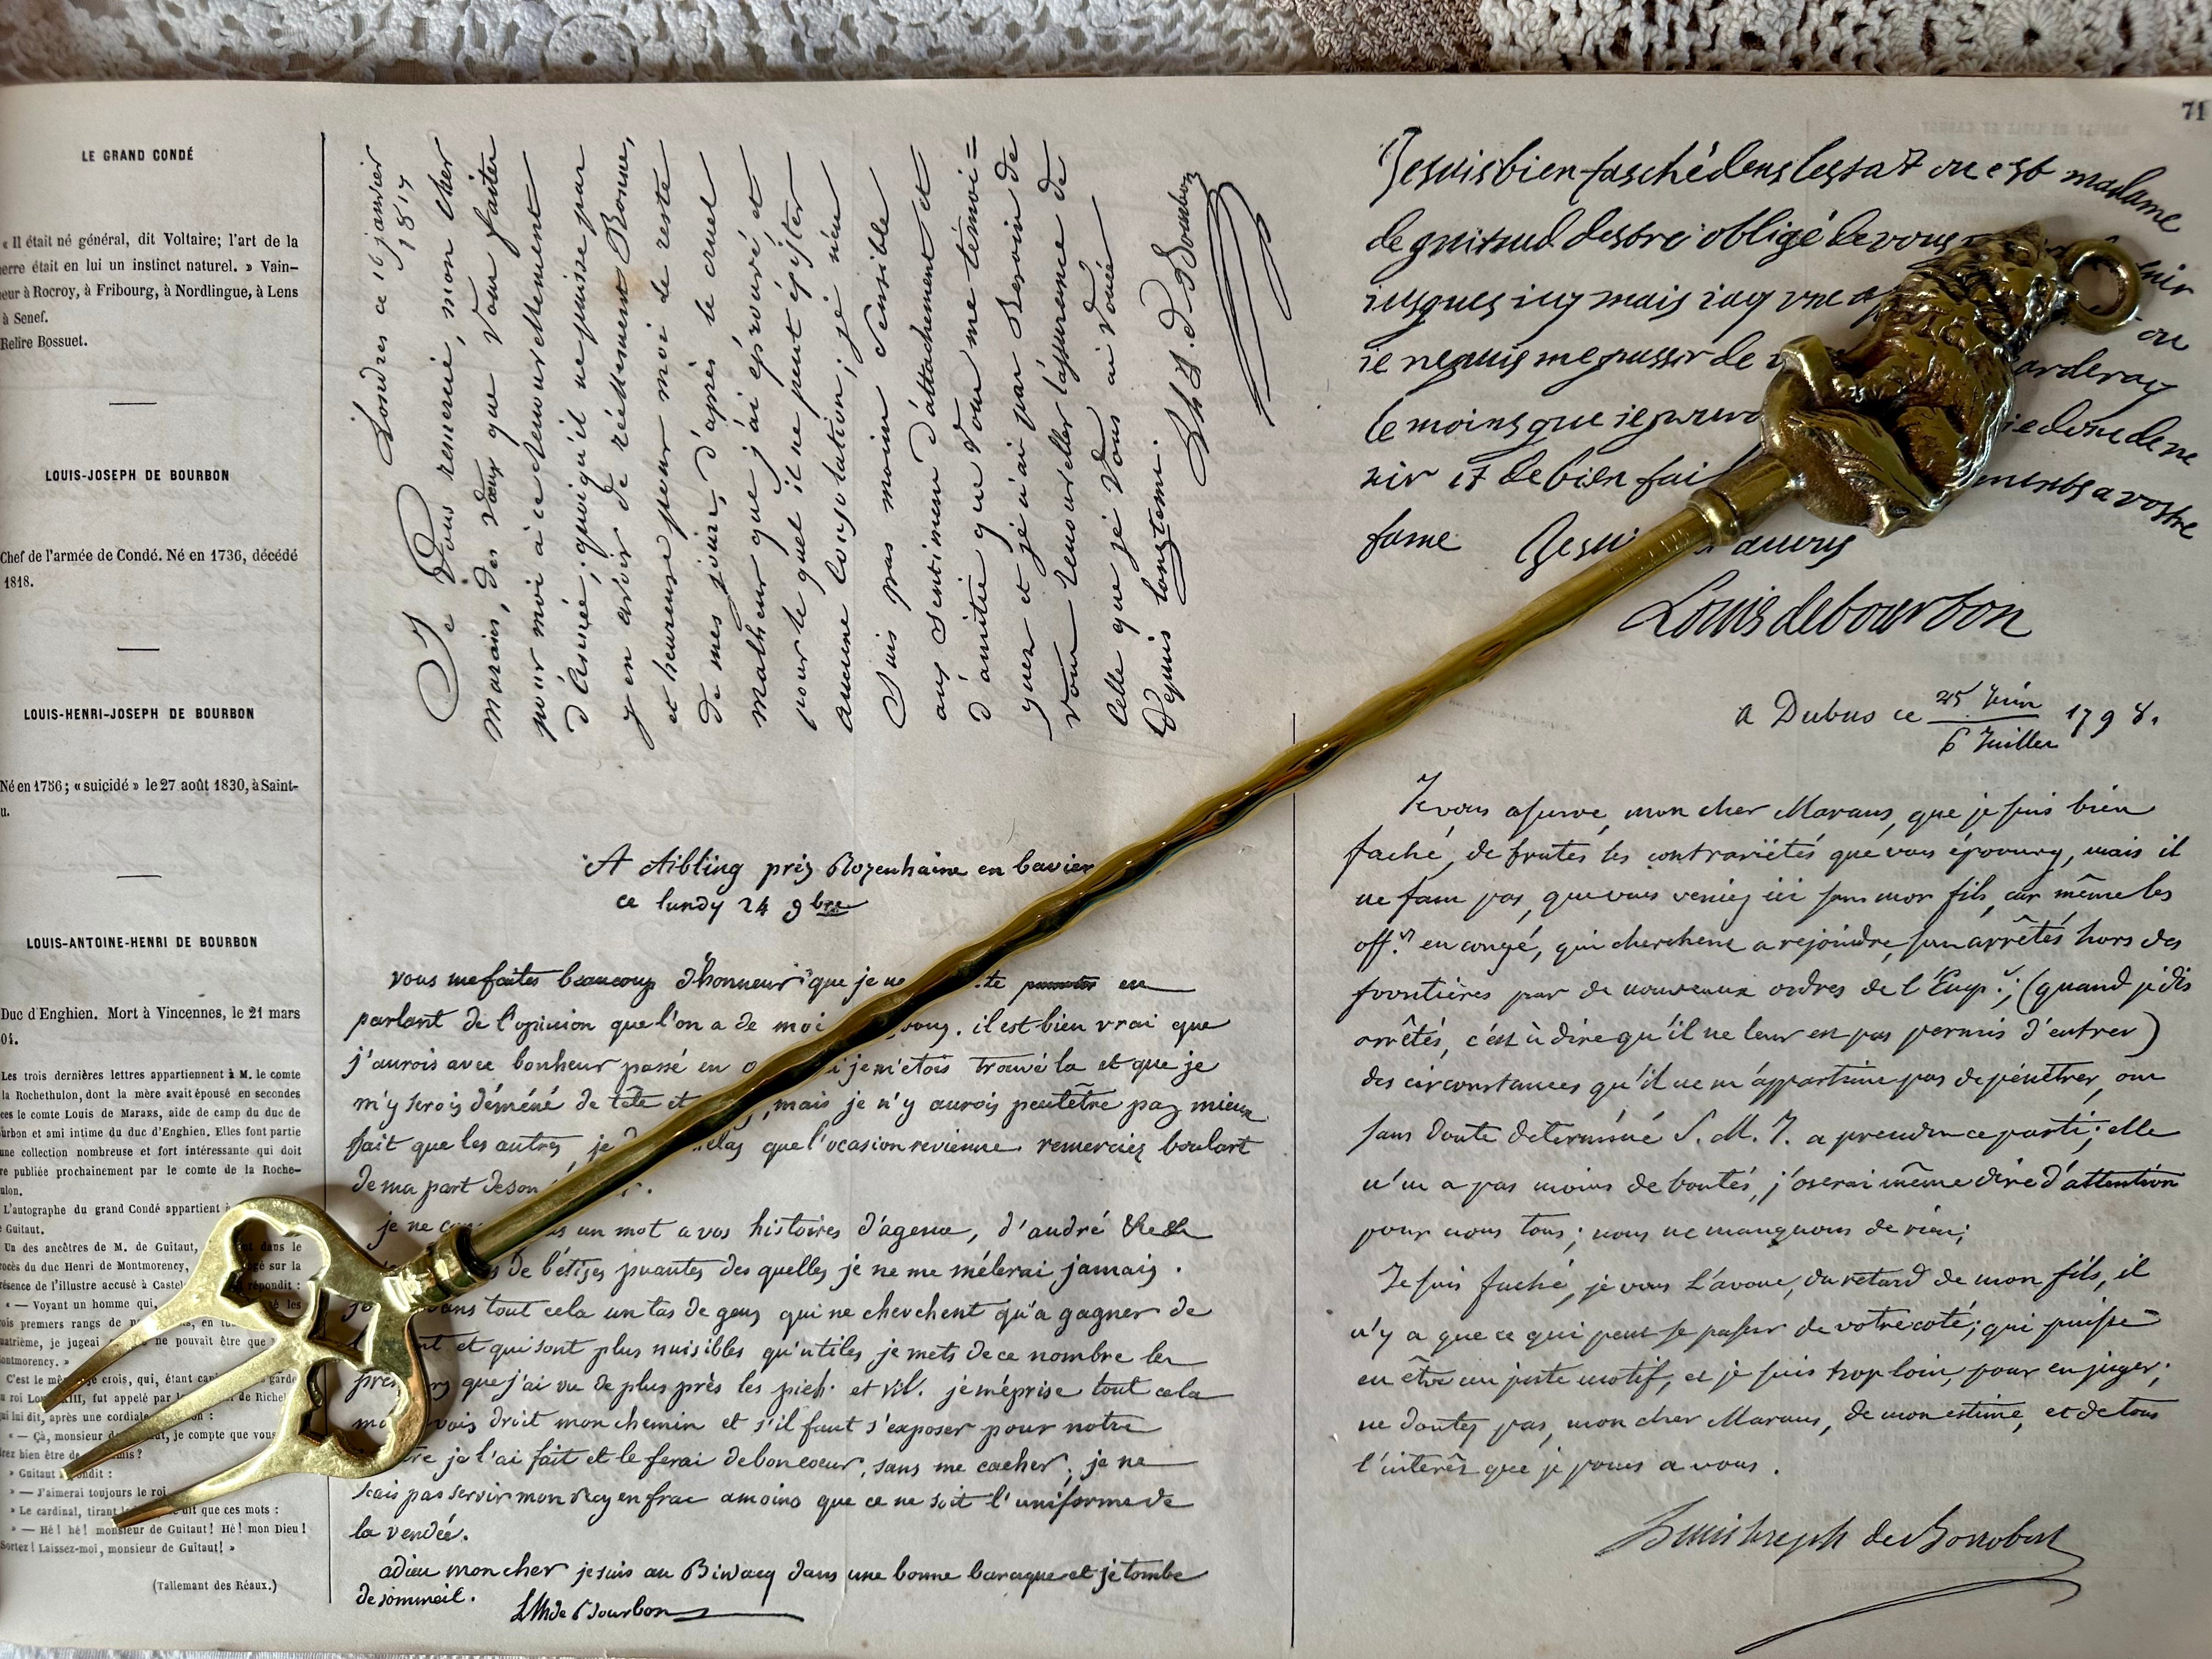 71
LE GRAND CONDÉ
« Il était né général, dit Voltaire; l'art de la
erre était en lui un instinct naturel. » Vain-
eur à Rocroy, à Fribourg, à Nordlingue, à Lens
à Senef.
Relire Bossuet.
LOUIS-JOSEPH DE BOURBON
Chef de l'armée de Condé. Né en 1736, décédé
1818.
LOUIS-HENRI-JOSEPH DE BOURBON
Né en 1756; « suicidé » le 27 août 1830, à Saint-
u.
LOUIS-ANTOINE-HENRI DE BOURBON
Duc d'Enghien. Mort à Vincennes, le 21 mars
04.
Les trois dernières lettres appartiennent à M. le comte
la Rochethulon, dont la mère avait épousé en secondes
ces le comte Louis de Marans, aide de camp du duc de
urbon et ami intime du duc d'Enghien. Elles font partie
une collection nombreuse et fort intéressante qui doit
re publiée prochainement par le comte de la Roche-
ulon.
L'autographe du grand Condé appartient à
Guitaut.
Un des ancêtres de M. de Guitaut, dans le
rocès du duc Henri de Montmorency, gé sur la
résence de l'illustre accusé à Castel répondit :
« — Voyant un homme qui, les
ois premiers rangs de en
uatrième, je jugeai ne pouvait être que
ontmorency. »
C'est le je crois, qui, étant garde
u roi XIII, fut appelé par de Richel
ui lui dit, après une cordiale :
« — Çà, monsieur je compte que vous
rez bien être de mis?
» Guitaut ondit :
» — J'aimerai toujours le roi
» Le cardinal, tirant dit que ces mots :
» — Hé! hé! monsieur de Guitaut! Hé! mon Dieu!
Sortez! Laissez-moi, monsieur de Guitaut! »
(Tallemant des Réaux.)
Londres ce 16 janvier
1817
Je Vous remercie, mon cher
Marans, des vœux que Vous faites
pour moi à ce renouvellement
d'Année; quoiqu'il ne puisse par
y en avoir de réellement Bonne,
et heureuse pour moi de reste
de mes jours, d'après le cruel
Malheur que j'ai éprouvé, et
pour le quel il ne peut éxister
aucune Consolation; je n'en
Suis pas moins Sensible
aux Sentimens d'attachement et
d'amitié que Vous me témoi=
gnez et je n'ai pas Besoin de
Vous renouveller l'assurance de
Celle que je Vous ai vouée
Depuis longtems.
L. h. j. d. Bourbon
A Aibling près Rozenhaine en bavier
ce lundy 24 9bre
vous me faites beaucoup d'honneur que je ne te en
parlant de l'opinion que l'on a de moi vous. il est bien vrai que
j'aurois avec bonheur passé en i je m'etois trouvé la et que je
m'y serois démené de tête et , mais je n'y aurois peutêtre pas mieux
fait que les autres, je elas que l'ocasion revienne. remerciez boulart
de ma part de son
je ne un mot a vos histoires d'agence, d'andré
de bétises puantes des quelles je ne me mêlerai jamais.
dans tout cela un tas de gens qui ne cherchent qu'a gagner de
nt et qui sont plus nuisibles qu'utiles je mets de ce nombre les
que j'ai vu de plus près les pich. et vil. je méprise tout cela
vais droit mon chemin et s'il faut s'exposer pour notre
tre je l'ai fait et le ferai de bon coeur, sans me cacher, je ne
scais pas servir mon Roy en frac amoins que ce ne soit l'uniforme de
la vendée.
adieu mon cher je suis au Bivacq dans une bonne baraque et je tombe
de sommeil.
L A h de Bourbon
Je suis bien fasché dens lestat ou est madame
de guitaud destre obligé de vous nir
iusques icy mais iay vne a ou
ie ne puis me passer de arderay
le moins que ie pourr ie donc de ne
nir et de bien fai ments a vostre
fame Je sui a vous
Louis de bourbon
a Dubno ce 25 Juin / 6 Juillet 1798.
Je vous assure, mon cher Marans, que je suis bien
faché, de toutes les contrariétés que vous éprouvez, mais il
ne faut pas, que vous veniez ici sans mon fils, car même les
off.rs en congé, qui cherchent a rejoindre, sont arrêtés hors des
frontières par de nouveaux ordres de l'Emp.r; (quand je dis
arrêtés, c'est à dire qu'il ne leur est pas permis d'entrer)
des circonstances qu'il ne m'appartient pas de pénétrer, ont
sans doute déterminé S. M. I. a prendre ce parti; elle
n'en a pas moins de bontés, j'oserai même dire d'attention
pour nous tous; nous ne manquons de rien;
Je suis faché, je vous l'avoue, du retard de mon fils, il
n'y a que ce qui peut se passer de votre coté, qui puisse
en être un juste motif, et je suis trop loin, pour en juger;
ne doutez pas, mon cher Marans, de mon estime, et de tout
l'interêt que je prens a vous.
Louis Joseph de Bourbon